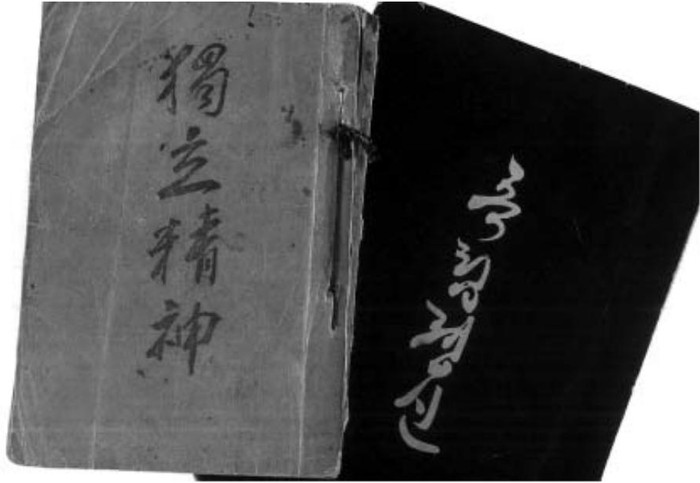 獨立精神
독립정신